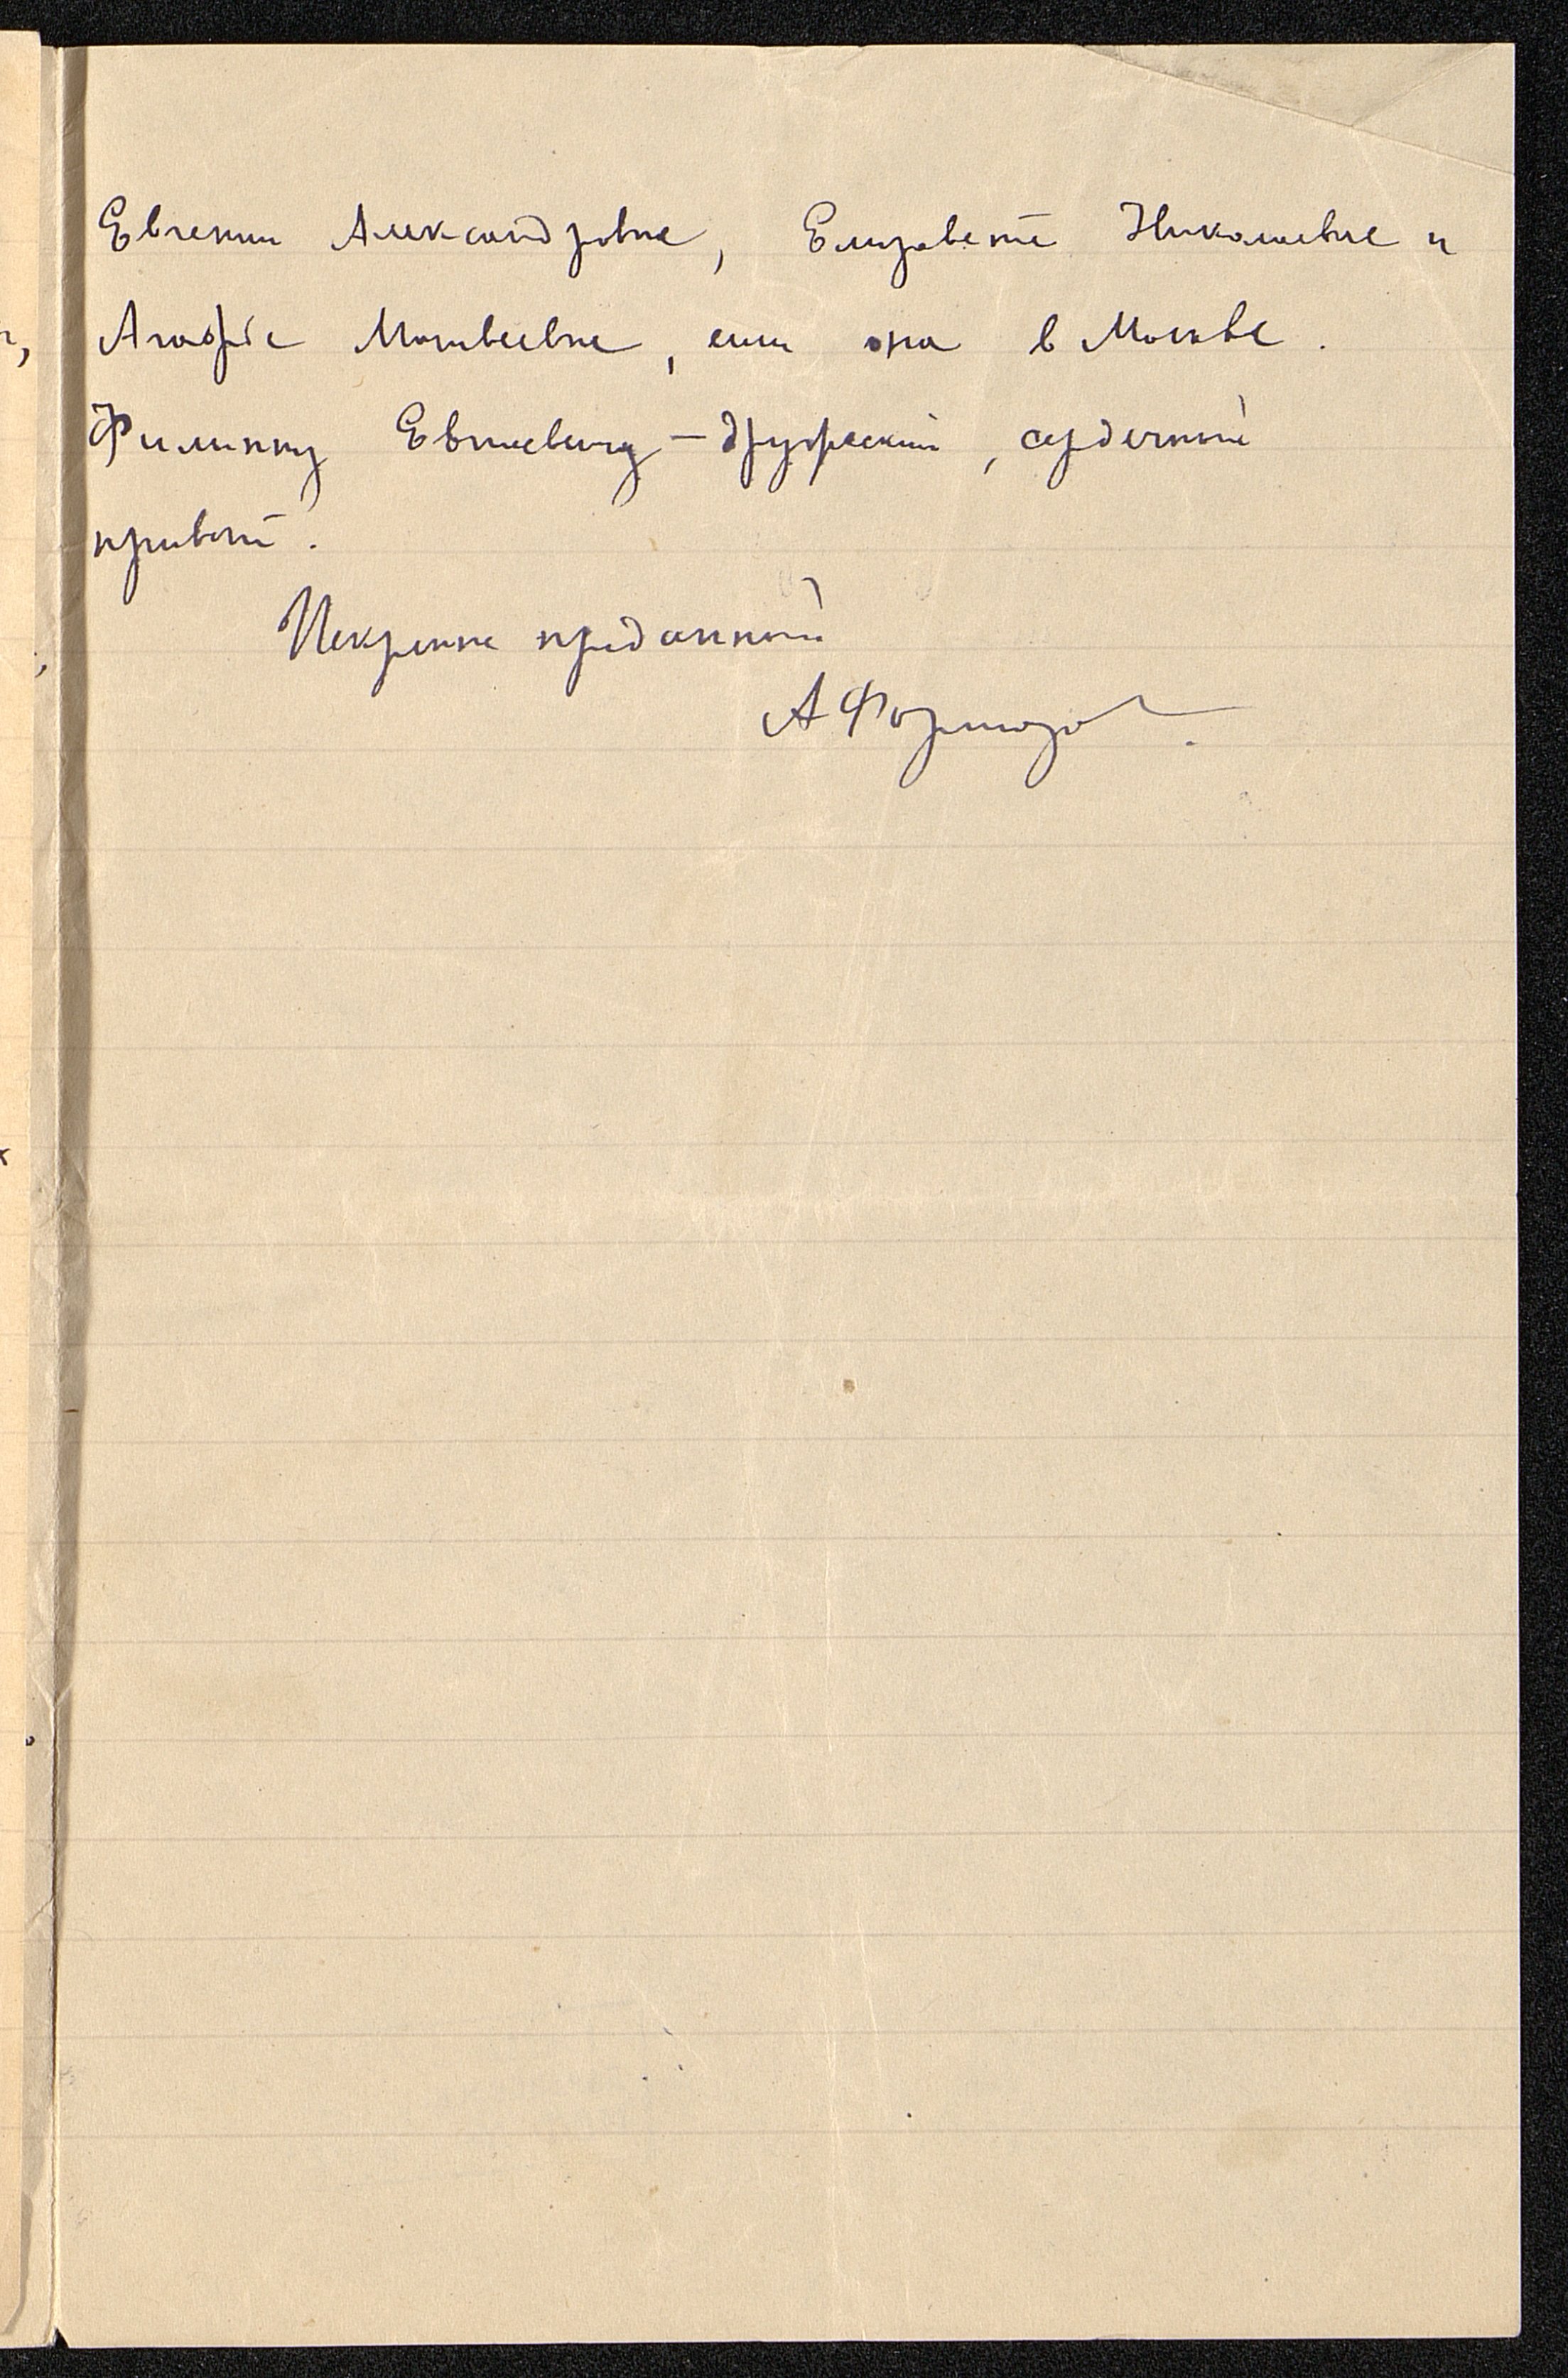 Евгении Александровне, Елизавете Николаевне и
Агафье Матвеевне, если она в Москве.
Филиппу Евтиевичу — дружеский, сердечный
привет.
Искренне преданный
А Формозов.